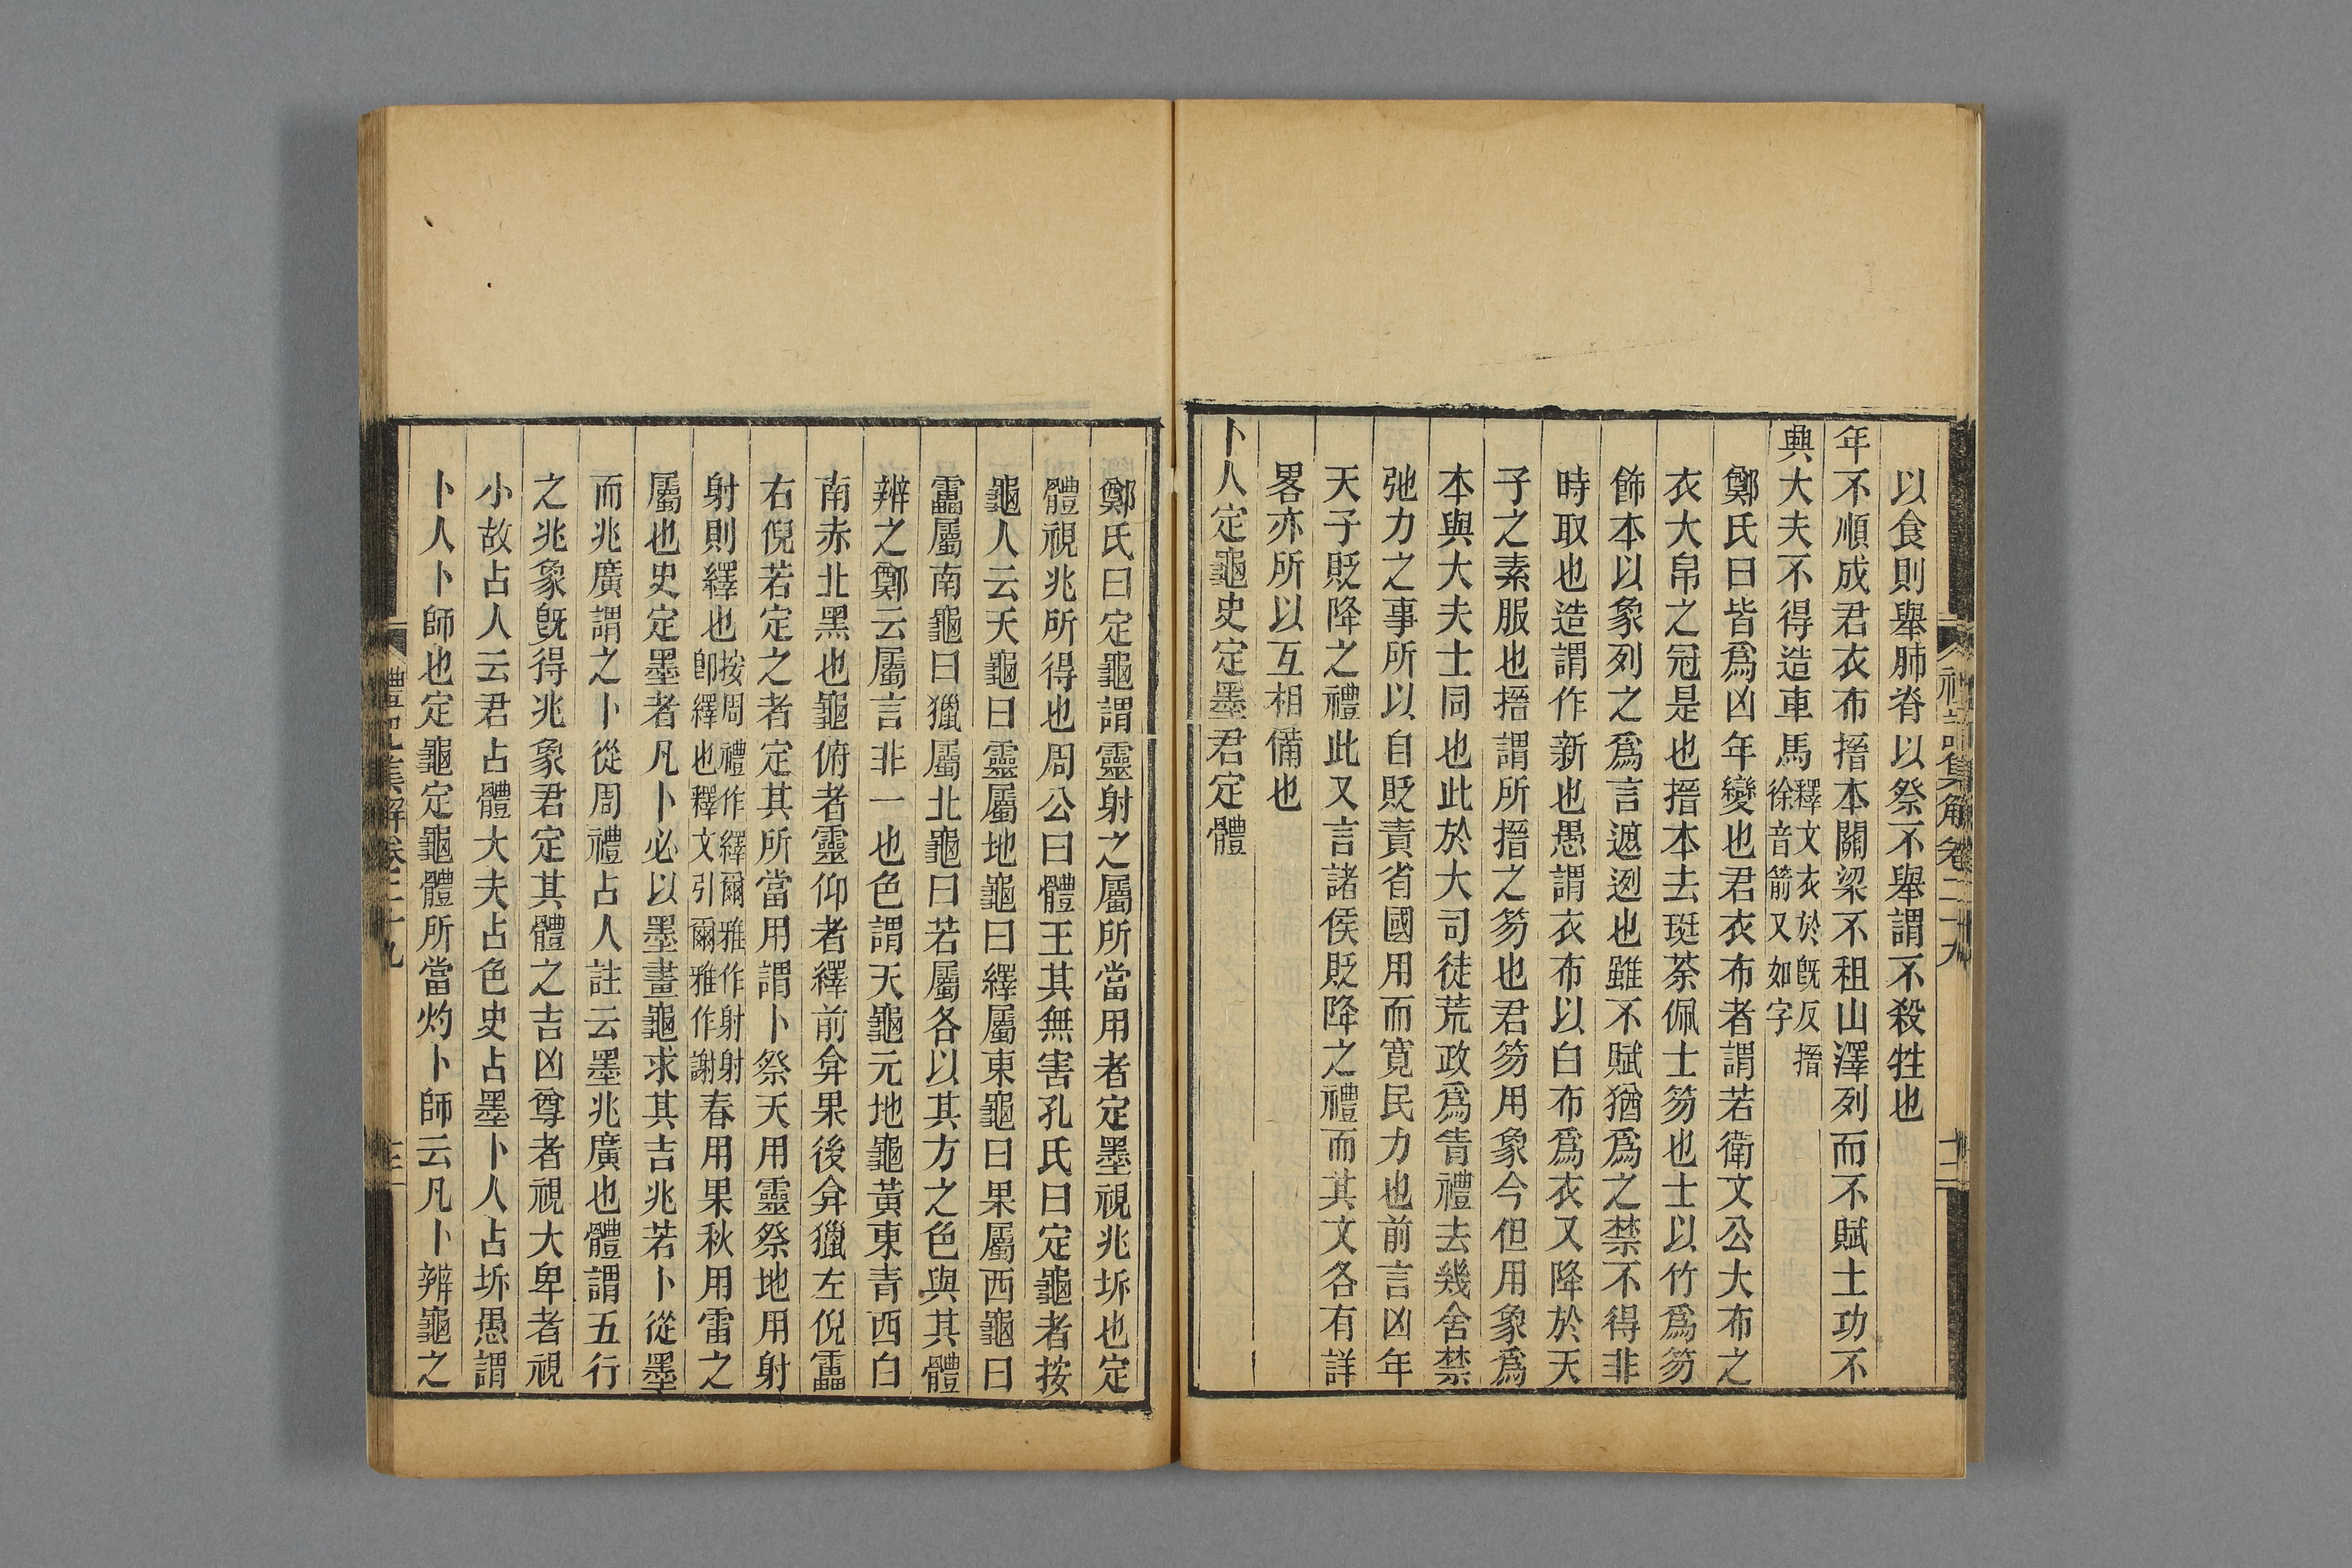 禮記集解卷二十九
十二
以食則舉肺脊以祭不舉謂不殺牲也
年不順成君衣布搢本關梁不租山澤列而不賦土功不
興大夫不得造車馬釋文衣於旣反搢徐音箭又如字
鄭氏曰皆爲凶年變也君衣布者謂若衛文公大布之
衣大帛之冠是也搢本去珽荼佩士笏也士以竹爲笏
飾本以象列之爲言遮迾也雖不賦猶爲之禁不得非
時取也造謂作新也愚謂衣布以白布爲衣又降於天
子之素服也搢謂所搢之笏也君笏用象今但用象爲
本與大夫士同也此於大司徒荒政爲眚禮去幾舍禁
弛力之事所以自貶責省國用而寬民力也前言凶年
天子貶降之禮此又言諸侯貶降之禮而其文各有詳
畧亦所以互相備也
卜人定龜史定墨君定體
鄭氏曰定龜謂靈射之屬所當用者定墨視兆坼也定
體視兆所得也周公曰體王其無害孔氏曰定龜者按
龜人云天龜曰靈屬地龜曰繹屬東龜曰果屬西龜曰
靁屬南龜曰獵屬北龜曰若屬各以其方之色與其體
辨之鄭云屬言非一也色謂天龜元地龜黃東青西白
南赤北黑也龜俯者靈仰者繹前弇果後弇獵左倪靁
右倪若定之者定其所當用謂卜祭天用靈祭地用射
射則繹也按周禮作繹爾雅作射射卽繹也釋文引爾雅作謝春用果秋用雷之
屬也史定墨者凡卜必以墨畫龜求其吉兆若卜從墨
而兆廣謂之卜從周禮占人註云墨兆廣也體謂五行
之兆象旣得兆象君定其體之吉凶尊者視大卑者視
小故占人云君占體大夫占色史占墨卜人占坼愚謂
卜人卜師也定龜定龜體所當灼卜師云凡卜辨龜之
禮記集解卷二十九